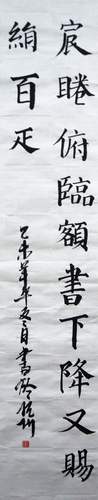 宸睠俯臨額書下降又賜
絹百疋
乙未羊年月書於杭州